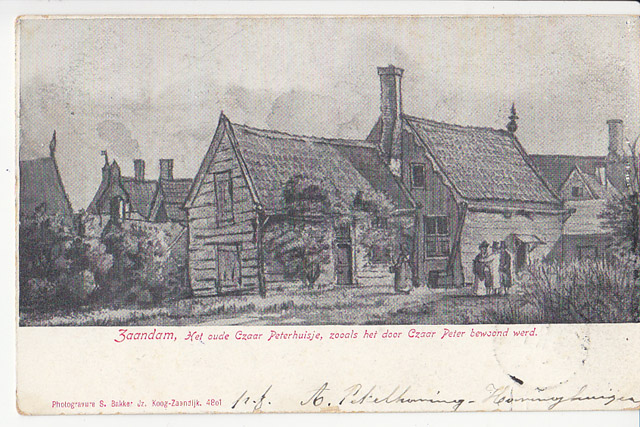 Zaandam, Het oude Czaar Peterhuisje, zooals het door Czaar Peter bewoond werd.
Photogravure S. Bakker Jz. Koog-Zaandijk. 4801
p.f. A. Pekelharing-